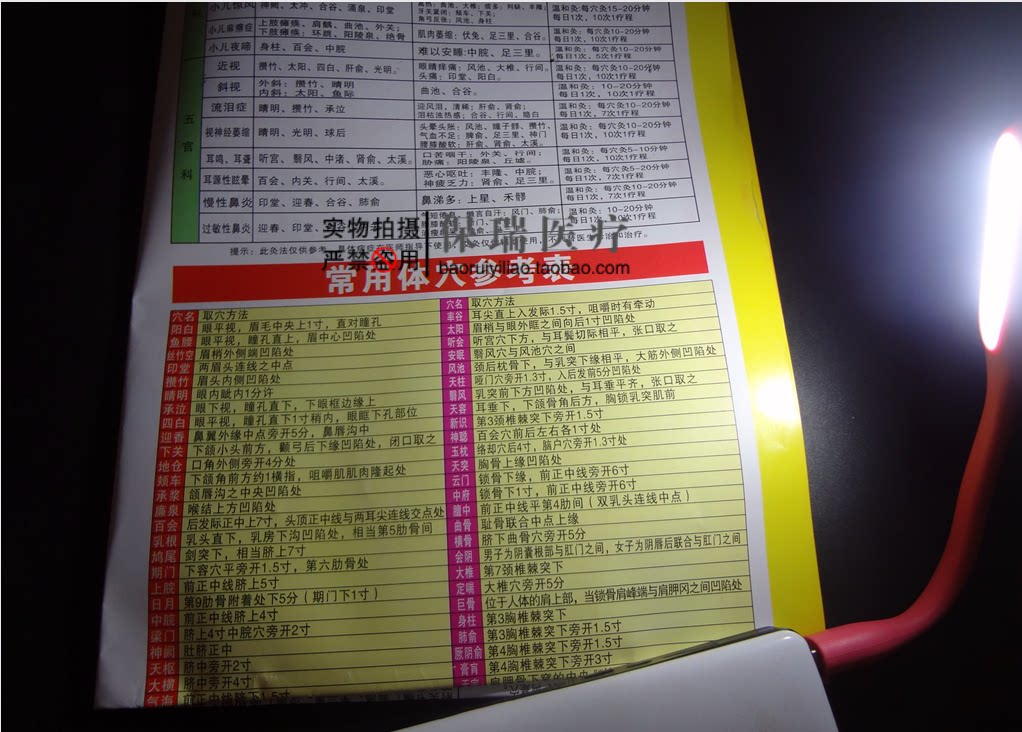 小儿惊风 神阙、太冲、合谷、涌泉、印堂
牙关紧闭：颊车、下关；
角弓反张：风池、身柱
温和灸：每穴灸15-20分钟
每日1次，10次1疗程
小儿麻痹症 上肢瘫痪：肩髃、曲池、外关；
下肢瘫痪：环跳、阳陵泉、绝骨
肌肉萎缩：伏兔、足三里、合谷。
温和灸：每穴灸10-20分钟
每日1次，10次1疗程
小儿夜啼 身柱、百会、中脘 难以安睡：中脘、足三里。
温和灸：每穴灸10-20分钟
每日1次，5次1疗程
五官科
近视 攒竹、太阳、四白、肝俞、光明。
眼睛痒痛：风池、大椎、行间。
头痛：印堂、阳白。
温和灸：每穴灸10-20分钟
每日1次，10次1疗程
斜视 外斜：攒竹、睛明
内斜：太阳、鱼际
曲池、合谷。
温和灸：10-20分钟
每日1次，10次1疗程
流泪症 睛明、攒竹、承泣
迎风泪，清稀：肝俞、肾俞；
泪枯流热感：合谷、行间、隐白
温和灸：每穴灸10-20分钟
每日1次，7次1疗程
视神经萎缩 睛明、光明、球后
头晕头胀：风池、瞳子髎、攒竹、
气血不足：脾俞、足三里、神门
腰膝酸软：肝俞、肾俞、太溪。
温和灸：每穴灸10-20分钟
每日1次，10次1疗程
耳鸣，耳聋 听宫、翳风、中渚、肾俞、太溪。
口苦咽干：外关、行间；
胁痛：阳陵泉、丘墟。
温和灸：每穴灸5-10分钟
每日1次，10次1疗程
耳源性眩晕 百会、内关、行间、太溪。
恶心呕吐：丰隆、中脘；
神疲乏力：肾俞、足三里。
温和灸：每穴灸5-20分钟
每日1次，7次1疗程
慢性鼻炎 印堂、迎春、合谷、肺俞 鼻涕多：上星、禾髎
温和灸：每穴灸10-20分钟
每日1次，10次1疗程
过敏性鼻炎 迎春、印堂、
温和灸：10-20分钟
实物拍摄
严禁盗用
保瑞医疗
baoruiyiliao.taobao.com
常用体穴参考表
穴名 取穴方法
阳白 眼平视，眉毛中央上1寸，直对瞳孔
鱼腰 眼平视，瞳孔直上，眉中心凹陷处
丝竹空 眉梢外侧端凹陷处
印堂 两眉头连线之中点
攒竹 眉头内侧凹陷处
睛明 眼内眦内1分许
承泣 眼下视，瞳孔直下，下眼框边缘上
四白 眼平视，瞳孔直下1寸稍内，眼眶下孔部位
迎香 鼻翼外缘中点旁开5分，鼻唇沟中
下关 下颌小头前方，颧弓后下缘凹陷处，闭口取之
地仓 口角外侧旁开4分处
颊车 下颌角前方约1横指，咀嚼肌肌肉隆起处
承浆 颌唇沟之中央凹陷处
廉泉 喉结上方凹陷处
百会 后发际正中上7寸，头顶正中线与两耳尖连线交点处
乳根 乳头直下，乳房下沟凹陷处，相当第5肋骨间
鸠尾 剑突下，相当脐上7寸
期门 下容穴平旁开1.5寸，第六肋骨处
上脘 前正中线脐上5寸
日月 第9肋骨附着处下5分（期门下1寸）
中脘 前正中线脐上4寸
梁门 脐上4寸中脘穴旁开2寸
神阙 肚脐正中
天枢 脐中旁开2寸
大横 脐中旁开4寸
气海 前正中线脐下1.5寸
穴名 取穴方法
率谷 耳尖直上入发际1.5寸，咀嚼时有牵动
太阳 眉梢与眼外眶之间向后1寸凹陷处
听会 听宫穴下方，与耳鬓切际相平，张口取之
安眠 翳风穴与风池穴之间
风池 颈后枕骨下，与乳突下缘相平，大筋外侧凹陷处
天柱 哑门穴旁开1.3寸，入后发前5分凹陷处
翳风 乳突前下方凹陷处，与耳垂平齐，张口取之
天容 耳垂下，下颌骨角后方，胸锁乳突肌前
新识 第3颈椎棘突下旁开1.5寸
神聪 百会穴前后左右各1寸处
玉枕 络却穴后4寸，脑户穴旁开1.3寸处
天突 胸骨上缘凹陷处
云门 锁骨下缘，前正中线旁开6寸
中府 锁骨下1寸，前正中线旁开6寸
膻中 前正中线平第4肋间（双乳头连线中点）
曲骨 耻骨联合中点上缘
横骨 脐下曲骨穴旁开5分
会阴 男子为阴囊根部与肛门之间，女子为阴唇后联合与肛门之间
大椎 第7颈椎棘突下
定喘 大椎穴旁开5分
巨骨 位于人体的肩上部，当锁骨肩峰端与肩胛冈之间凹陷处
身柱 第3胸椎棘突下
肺俞 第3胸椎棘突下旁开1.5寸
厥阴俞 第4胸椎棘突下旁开1.5寸
膏肓 第4胸椎棘突下旁开3寸